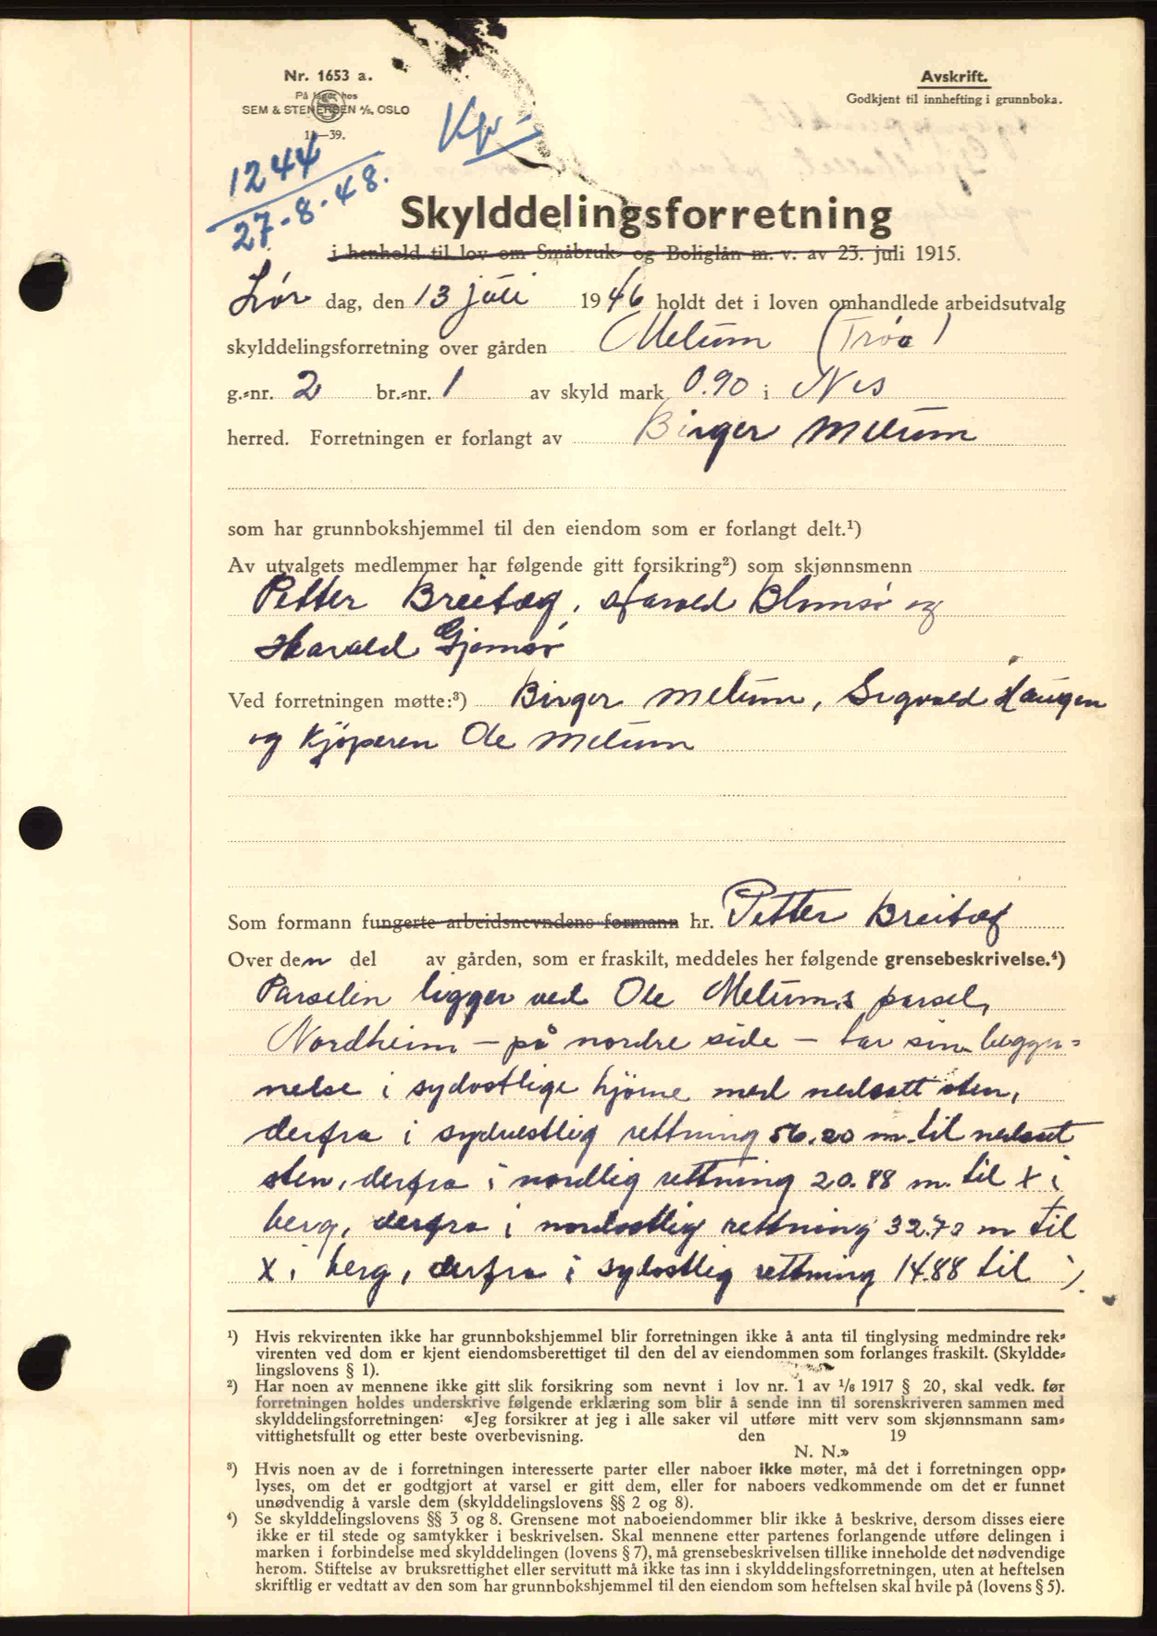 Nr. 1653 a.
På lager hos
SEM & STENERSEN A/S, OSLO
11—39.
Avskrift.
Godkjent til innhefting i grunnboka.
Kp.
1244
27-8-48.
Skylddelingsforretning
i henhold til lov om Småbruk- og Boliglån m. v. av 23. juli 1915.
Lør dag, den 13 juli 1946 holdt det i loven omhandlede arbeidsutvalg
skylddelingsforretning over gården Melum (Trøa)
g.-nr. 2 br.-nr. 1 av skyld mark 0.90 i Nes
herred. Forretningen er forlangt av Birger Melum
som har grunnbokshjemmel til den eiendom som er forlangt delt.¹)
Av utvalgets medlemmer har følgende gitt forsikring²) som skjønnsmenn
Petter Breitæg, Harald Blomsø og
Harald Gjømsø
Ved forretningen møtte:³) Birger Melum, Sigvald Haugen
og Kjøperen Ole Melum
Som formann fungerte arbeidsnevndens formann hr. Petter Breitæg
Over den del av gården, som er fraskilt, meddeles her følgende grensebeskrivelse.⁴)
Parsellen ligger ved Ole Melums parsel,
Nordheim — på nordre side — tar sin begyn-
nelse i sydøstlige hjørne med nedsatt sten,
derfra i sydvestlig rettning 56.20 m. til nedsat
sten, derfra i nordlig rettning 20.88 m. til X i
berg, derfra i nordøstlig rettning 32.70 m til
X i berg, derfra i sydøstlig rettning 14.88 til
¹) Hvis rekvirenten ikke har grunnbokshjemmel blir forretningen ikke å anta til tinglysing medmindre rek-
virenten ved dom er kjent eiendomsberettiget til den del av eiendommen som forlanges fraskilt. (Skyldde-
lingslovens § 1).
²) Har noen av mennene ikke gitt slik forsikring som nevnt i lov nr. 1 av 1/6 1917 § 20, skal vedk. før
forretningen holdes underskrive følgende erklæring som blir å sende inn til sorenskriveren sammen med
skylddelingsforretningen: «Jeg forsikrer at jeg i alle saker vil utføre mitt verv som skjønnsmann sam-
vittighetsfullt og etter beste overbevisning. den 19
N. N.»
³) Hvis noen av de i forretningen interesserte parter eller naboer ikke møter, må det i forretningen opp-
lyses, om det er godtgjort at varsel er gitt dem, eller for naboers vedkommende om det er funnet
unødvendig å varsle dem (skylddelingslovens §§ 2 og 8).
⁴) Se skylddelingslovens §§ 3 og 8. Grensene mot naboeiendommer blir ikke å beskrive, dersom disses eiere
ikke er til stede og samtykker i beskrivelsen. Skal mennene etter partenes forlangende utføre delingen i
marken i forbindelse med skylddelingen (lovens § 7), må grensebeskrivelsen tillike inneholde det nødvendige
herom. Stiftelse av bruksrettighet eller servitutt må ikke tas inn i skylddelingsforretningen, uten at heftelsen
skriftlig er vedtatt av den som har grunnbokshjemmel til den eiendom som heftelsen skal hvile på (lovens § 5).